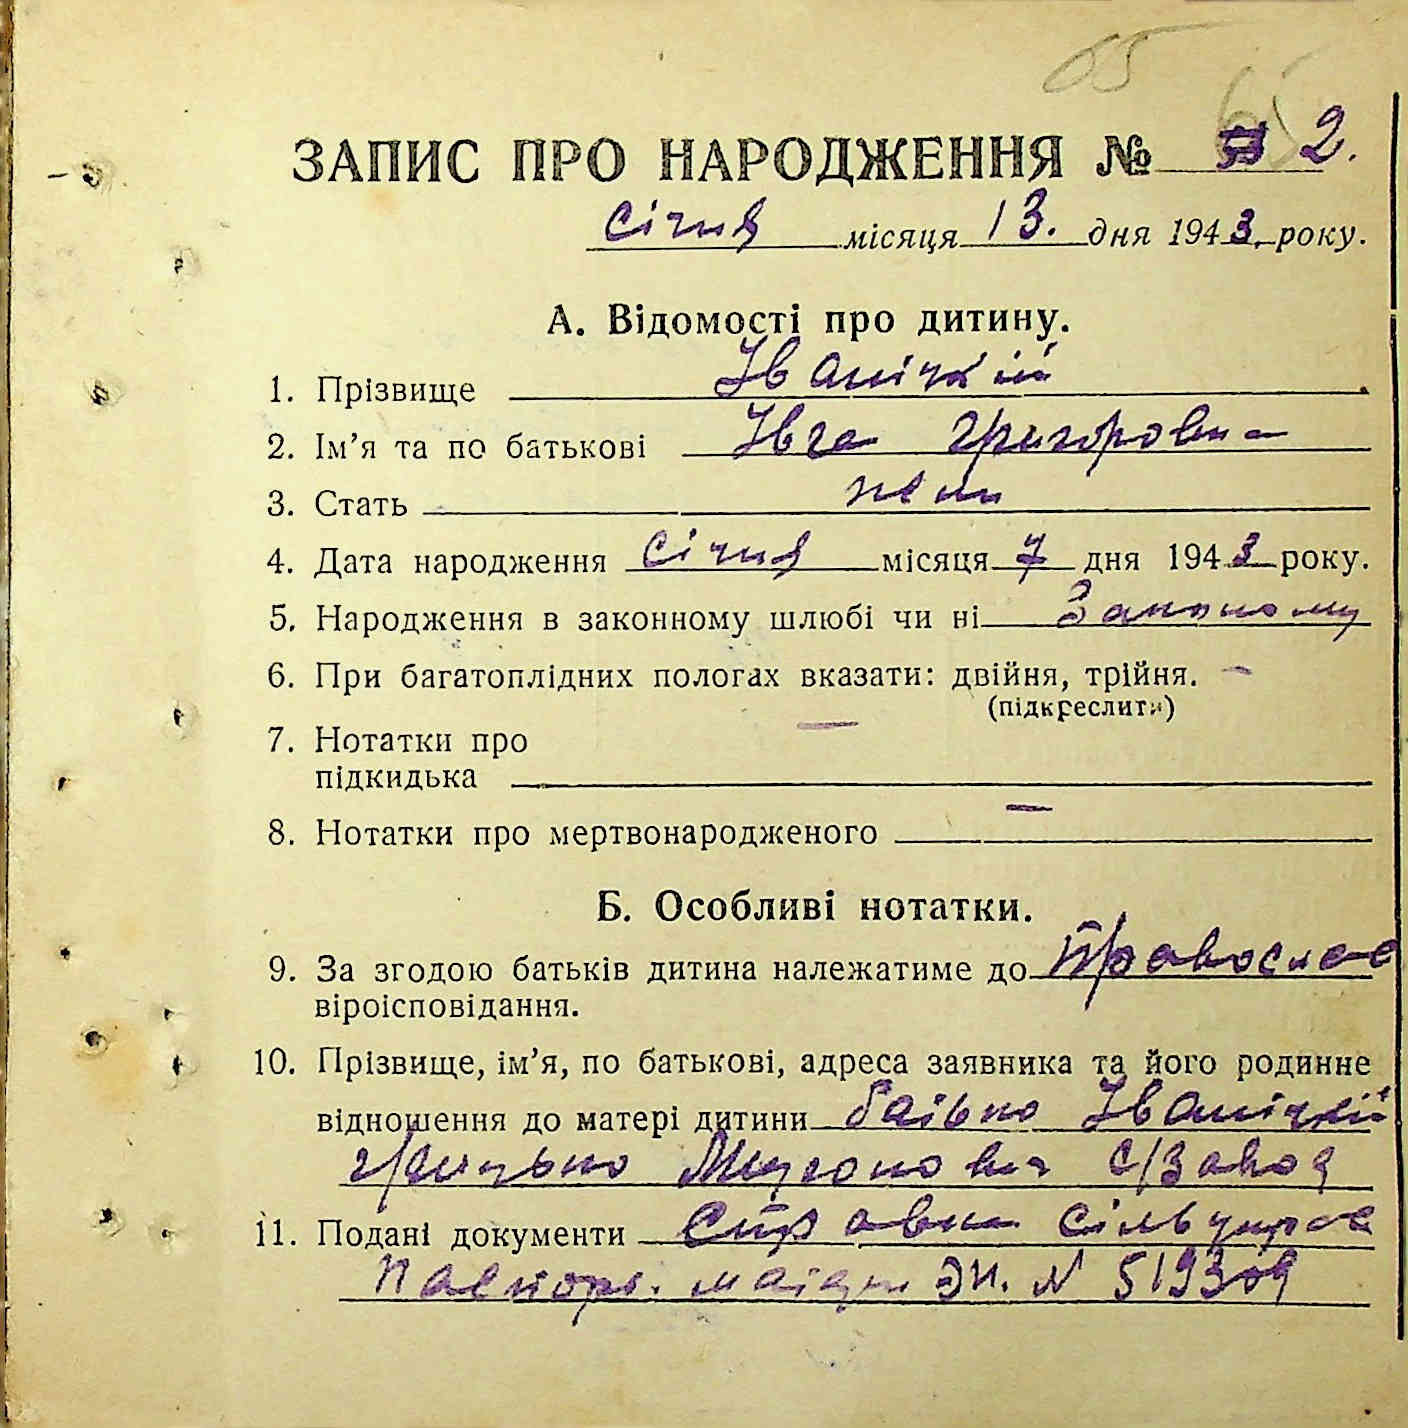 65
ЗАПИС ПРО НАРОДЖЕННЯ № 2.
Січня місяця 13. дня 1943. року.
А. Відомості про дитину.
1. Прізвище Іваніцкій
2. Ім'я та по батькові Івга Григоровна
3. Стать жен
4. Дата народження Січня місяця 7 дня 1943 року.
5. Народження в законному шлюбі чи ні Законому
6. При багатоплідних пологах вказати: двійня, трійня. –
(підкреслити)
7. Нотатки про —
підкидька
8. Нотатки про мертвонародженого —
Б. Особливі нотатки.
9. За згодою батьків дитина належатиме до Православ
віроісповідання.
10. Прізвище, ім'я, по батькові, адреса заявника та його родинне
відношення до матері дитини Іваніцкій
с/Завод
11. Подані документи Справка
Паспорт. № 519309